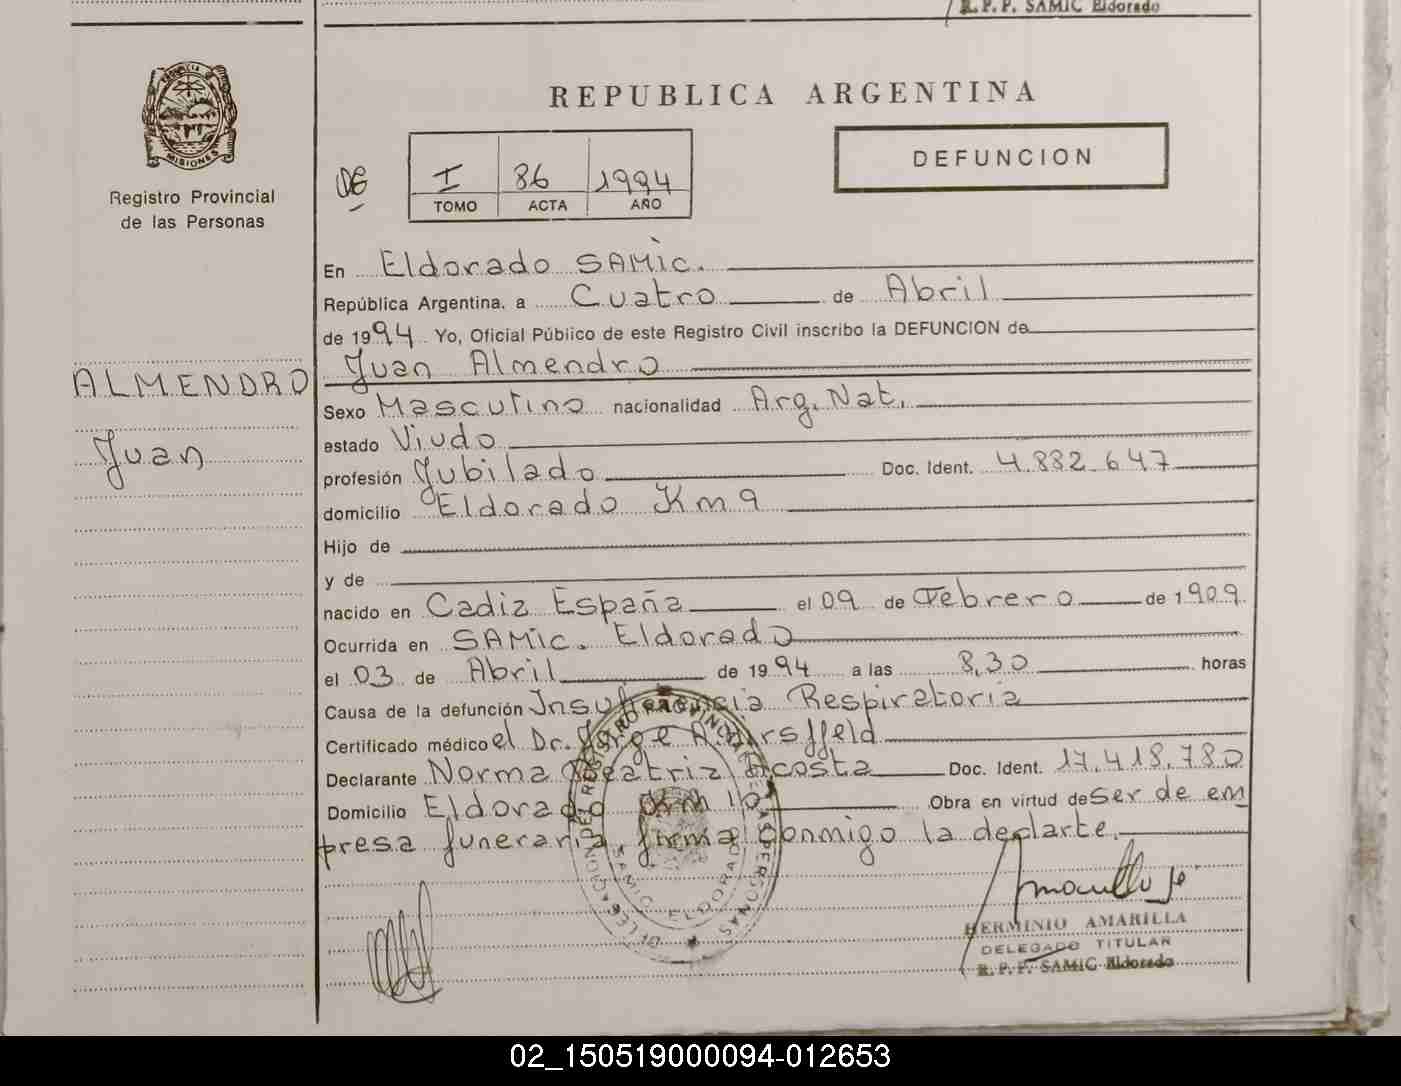 R. P. P. SAMIC Eldorado
PROVINCIA DE
MISIONES
Registro Provincial
de las Personas
ALMENDRO
Juan
REPUBLICA ARGENTINA
DEFUNCION
I 86 1994
TOMO ACTA AÑO
En Eldorado SAMic.
República Argentina, a Cuatro de Abril
de 1994 Yo, Oficial Público de este Registro Civil inscribo la DEFUNCION de
Juan Almendro
Sexo Masculino nacionalidad Arg. Nat.
estado Viudo
profesión Jubilado Doc. Ident. 4.882.647
domicilio Eldorado Km 9
Hijo de
y de
nacido en Cadiz España el 09 de Febrero de 1909
Ocurrida en SAMic. Eldorado
el 03 de Abril de 1994 a las 8,30 horas
Causa de la defunción Insuficiencia Respiratoria
Certificado médico el Dr. Jorge
Declarante Norma Beatriz Acosta Doc. Ident. 17.418.780
Domicilio Eldorado Km 10 Obra en virtud de ser de em
presa funeraria firma conmigo la declarte.
DELEGACION DEL REGISTRO PROVINCIAL DE LAS PERSONAS
SAMIC ELDORADO
HERMINIO AMARILLA
DELEGADO TITULAR
R. P. P. SAMIC Eldorado
02_150519000094-012653